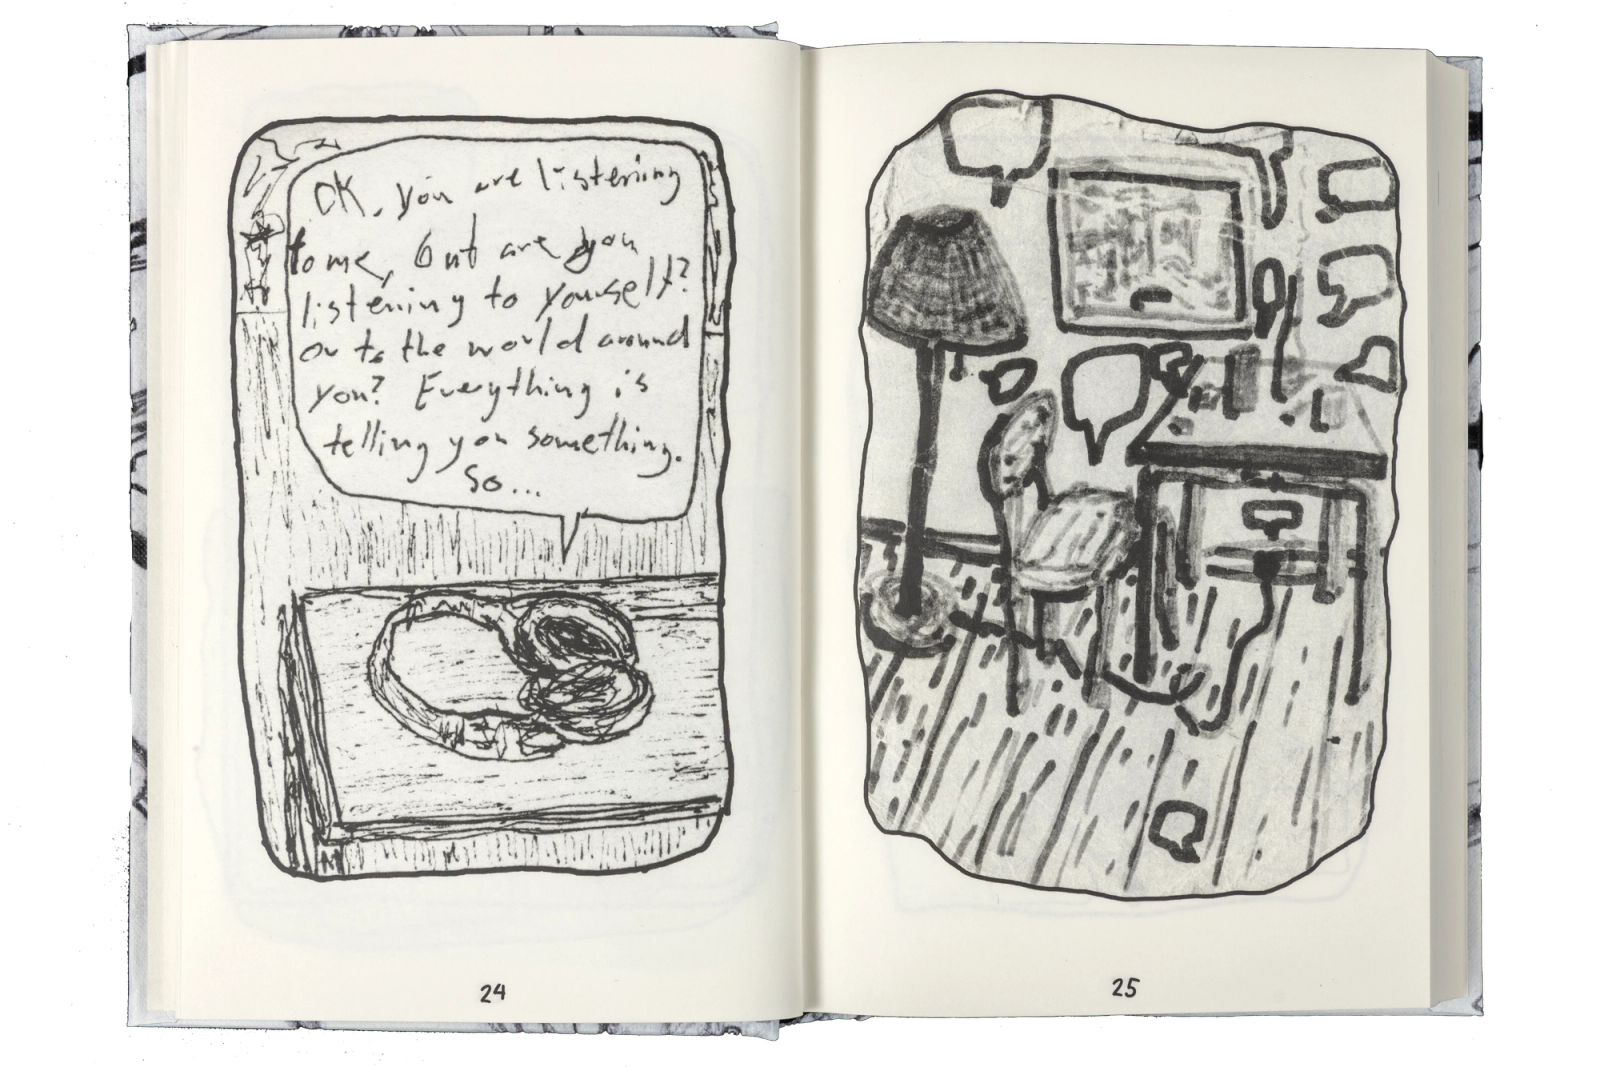 OK, you are listening
to me, but are you
listening to yourself?
Or to the world around
you? Everything is
telling you something.
So...
24
25